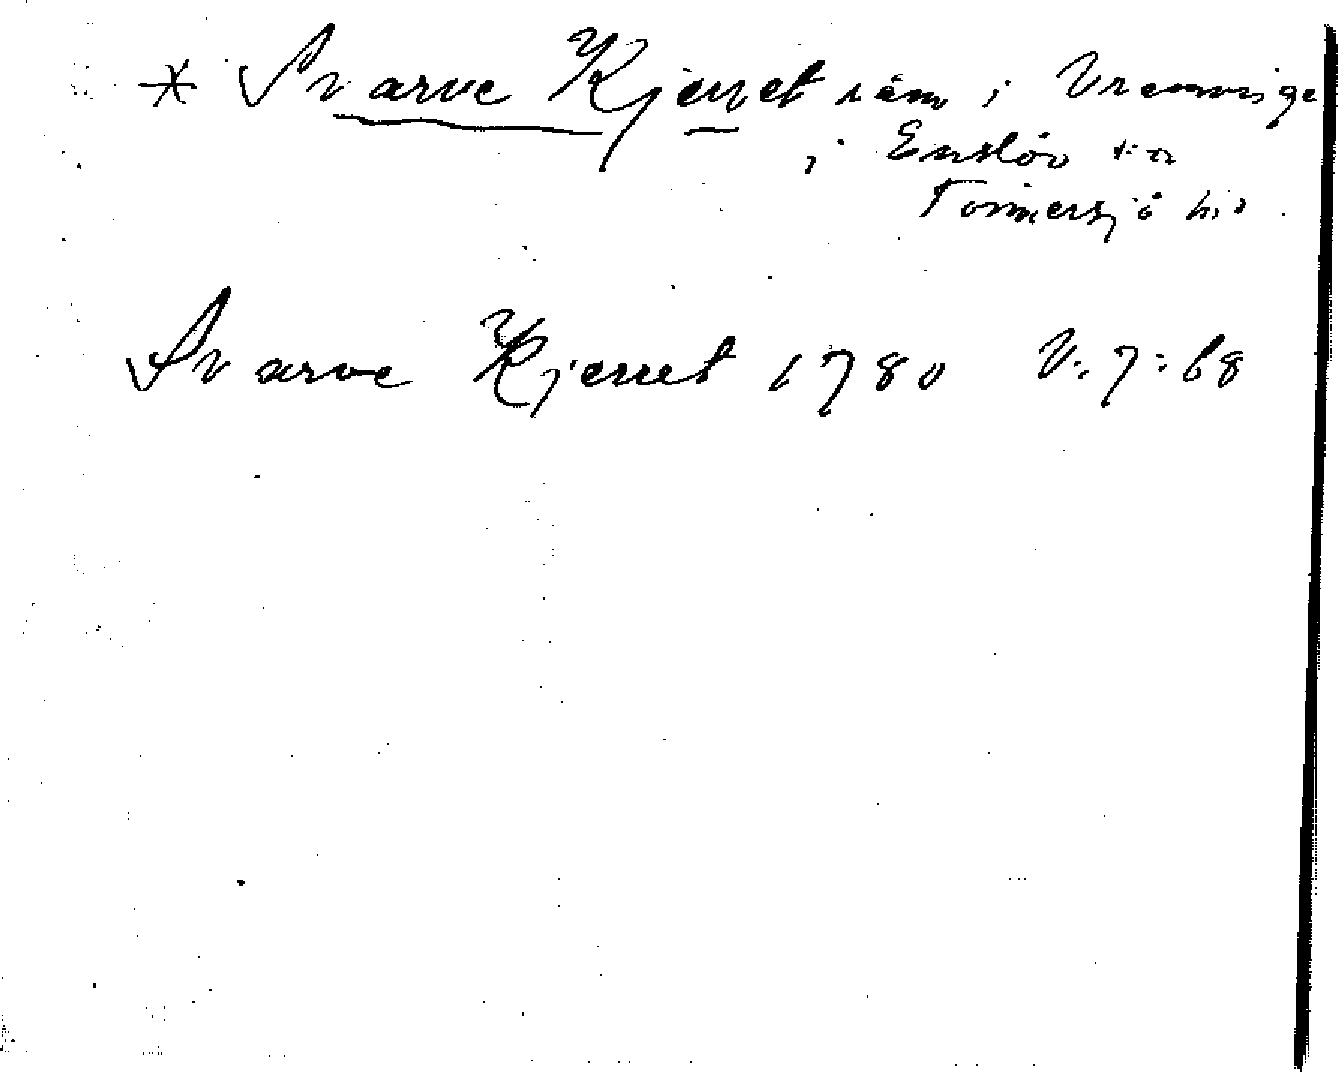 * Svarve Kjerret räm i Vrenninge
i Enslöv sn
Tönnersjö hd.
Svarve Kjerret 1780 V:7:68